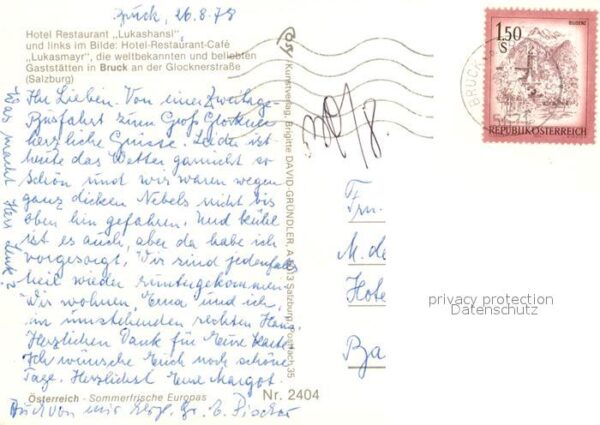 Bruck, 26.8.78
Hotel Restaurant „Lukashansl"
und links im Bilde: Hotel-Restaurant-Café
„Lukasmayr", die weltbekannten und beliebten
Gaststätten in Bruck an der Glocknerstraße
(Salzburg)
Ihr Lieben. Von einer Zweitage-
Busfahrt zum Groß Glockner
herzliche Grüsse. Leider ist
heute das Wetter garnicht so
schön und wir waren wegen
ganz dicken Nebels nicht bis
oben hin gefahren. Und kühl
ist es auch, aber da habe ich
vorgesorgt. Wir sind jedenfalls
heil wieder runtergekommen
Wir wohnen, Erna und ich,
im umstehenden rechten Haus.
Herzlichen Dank für Eure Karte.
Ich wünsche Euch noch schöne
Tage. Herzlichst Eure Margot.
Österreich - Sommerfrische Europas
Nr. 2404
Auch von mir herzl. Gr. E. Fischer
Was macht Herr Link?
Kunstverlag, Brigitte DAVID-GRÜNDLER, A 5013 Salzburg, Postfach 35
1.50
S
BLUDENZ
REPUBLIK ÖSTERREICH
BRUCK
5671
Frn.
M. de
Hote
Ba
privacy protection
Datenschutz